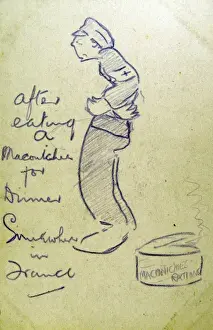 After
eating
a
Maconichie
for
Dinner
Somewhere
in
France
MACONICHIE
RATION